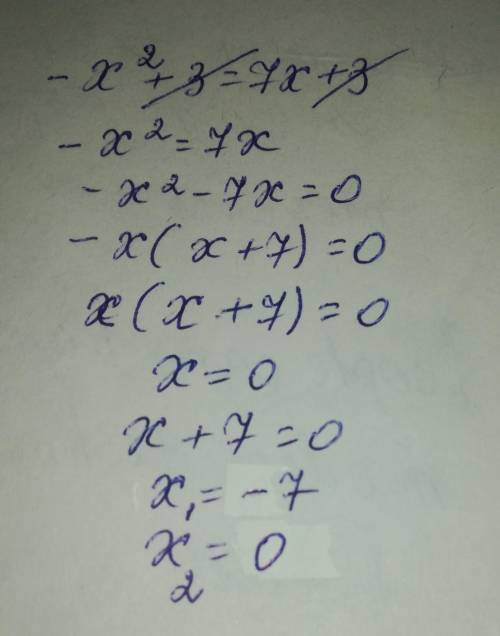 - x² + 3 = 7x + 3
- x² = 7x
- x² - 7x = 0
- x ( x + 7) = 0
x ( x + 7) = 0
x = 0
x + 7 = 0
x₁ = - 7
x₂ = 0